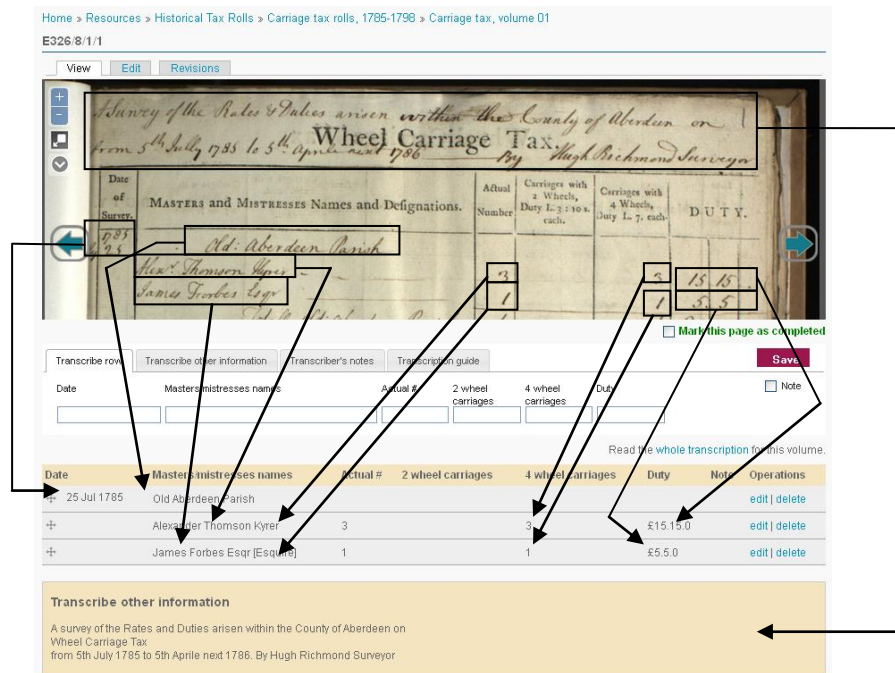 Home » Resources » Historical Tax Rolls » Carriage tax rolls, 1785-1798 » Carriage tax, volume 01
E326/8/1/1
View Edit Revisions
A Survey of the Rates & Duties arisen within the County of Aberdeen on
Wheel Carriage Tax.
from 5th Jully 1785 to 5th Aprile next 1786 By Hugh Richmond Surveyor
Date of Survey. MASTERS and MISTRESSES Names and Designations. Actual Number Carriages with 2 Wheels, Duty L. 3 : 10 s. each. Carriages with 4 Wheels, Duty L. 7. each. DUTY.
1785
25 Old Aberdeen Parish
Alexr. Thomson Kyrer 3 3 15 15
James Forbes Esqr 1 1 5 5
Mark this page as completed
Transcribe row Transcribe other information Transcriber's notes Transcription guide Save
Date Masters/mistresses names Actual # 2 wheel carriages 4 wheel carriages Duty Note
Read the whole transcription for this volume.
Date Masters/mistresses names Actual # 2 wheel carriages 4 wheel carriages Duty Note Operations
25 Jul 1785 Old Aberdeen Parish edit | delete
Alexander Thomson Kyrer 3 3 £15.15.0 edit | delete
James Forbes Esqr [Esquire] 1 1 £5.5.0 edit | delete
Transcribe other information
A survey of the Rates and Duties arisen within the County of Aberdeen on
Wheel Carriage Tax
from 5th July 1785 to 5th Aprile next 1786. By Hugh Richmond Surveyor